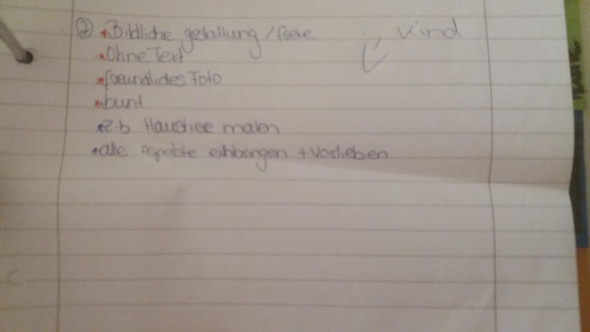 ② • Bildliche getaltung / Kind
• Ohne Text
• freundliches Foto
• bunt
• z.b Haustiere malen
• alle Aspekte einbringen + Vorlieben